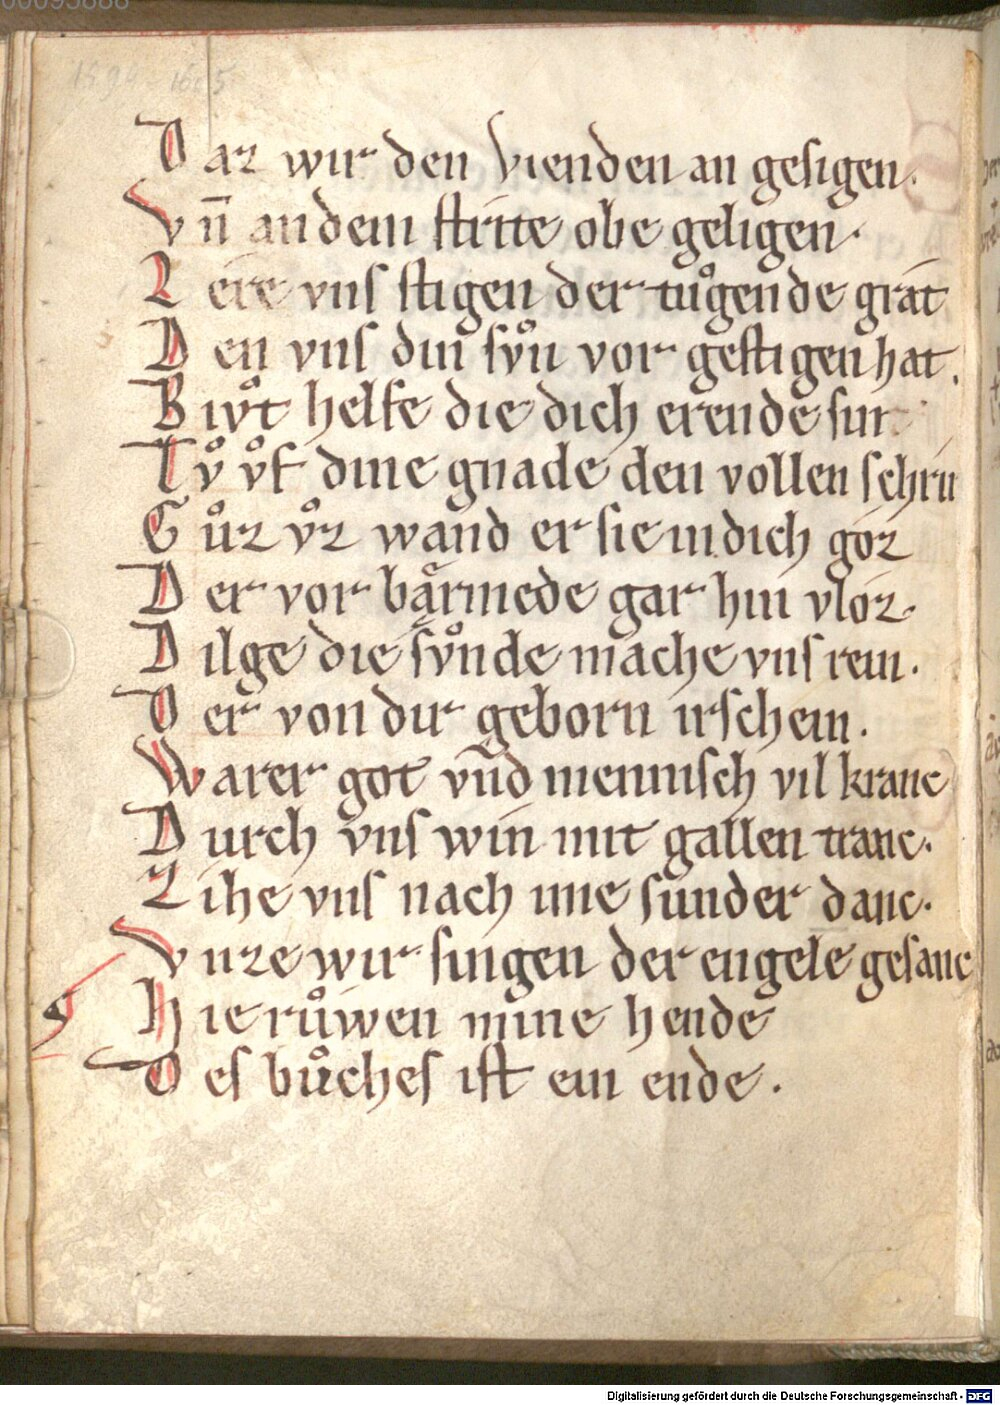 00095888
1594-1605
Daz wir den vienden an gesigen.
Vn̄ an dem ſtrite obe geligen.
Lere vnſ ſtigen der tuͦgende grat
Den vnſ din ſvͦn vor geſtigen hat.
Bivͦt helfe die dich erende ſin.
Tvͦ vͦf dine gnade den vollen ſchrin
Guͦz vͦz wand er ſie in dich goz
Der vor barmede gar hin vloz.
Dilge die ſvͦnde mache vnſ rein.
Der von dir geborn irſchein.
Warer got vnd mennisch vil kranc
Durch vnſ win mit gallen tranc.
Lihe vnſ nach ime ſunder danc.
Vnze wir ſingen der engele geſanc
Hie ruͦwen mine hende
Deſ buͦcheſ iſt ein ende.
Digitalisierung gefördert durch die Deutsche Forschungsgemeinschaft - DFG